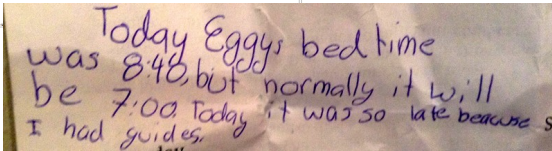 Today Eggys bedtime
was 8:40, but normally it will
be 7:00. Today it was so late beacuse
I had guides.